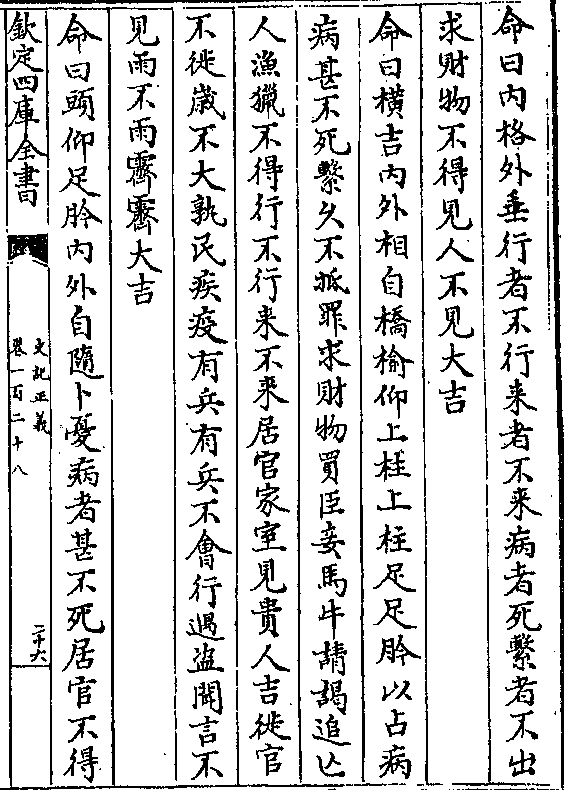 命曰内格外垂行者不行来者不来病者死繫者不出
求財物不得見人不見大吉
命曰横吉内外相自橋榆仰上柱上柱足足肣以占病
病甚不死繫乆不抵罪求財物買臣妾馬牛請謁追亾
人漁獵不得行不行来不来居官家室見貴人吉徙官
不徙嵗不大孰民疾疫有兵有兵不會行遇盗聞言不
見雨不雨霽霽大吉
命曰頭仰足肣内外自隨卜憂病者甚不死居官不得
欽定四庫全書
史記正義
卷一百二十八
二十六